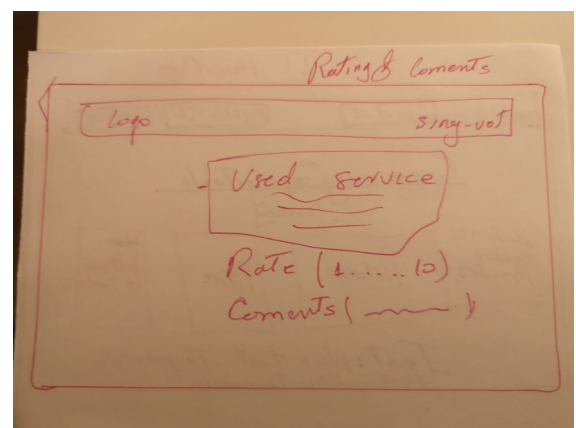 Rating & Coments
logo sing-uot
Used service
Rate (1.....10)
Coments( )